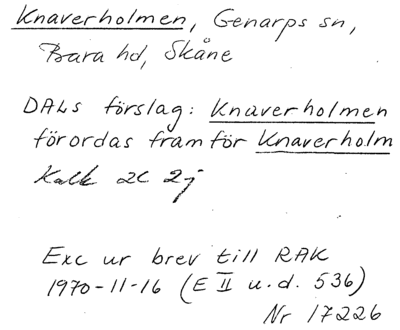 Knaverholmen, Genarps sn,
Bara hd, Skåne
DALs förslag: Knaverholmen
förordas framför Knaverholm
Kalk 2C 2j
Exc ur brev till RAK
1970-11-16 (E II u.d. 536)
Nr 17226